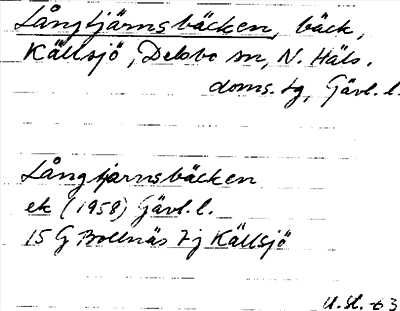 Långtjärnsbäcken, bäck,
Källsjö, Delsbo sn, N. Häls.
doms. tg, Gävl. l.
Långtjärnsbäcken
ek (1958) Gävl. l.
15 G Bollnäs 7j Källsjö
U. St. 63